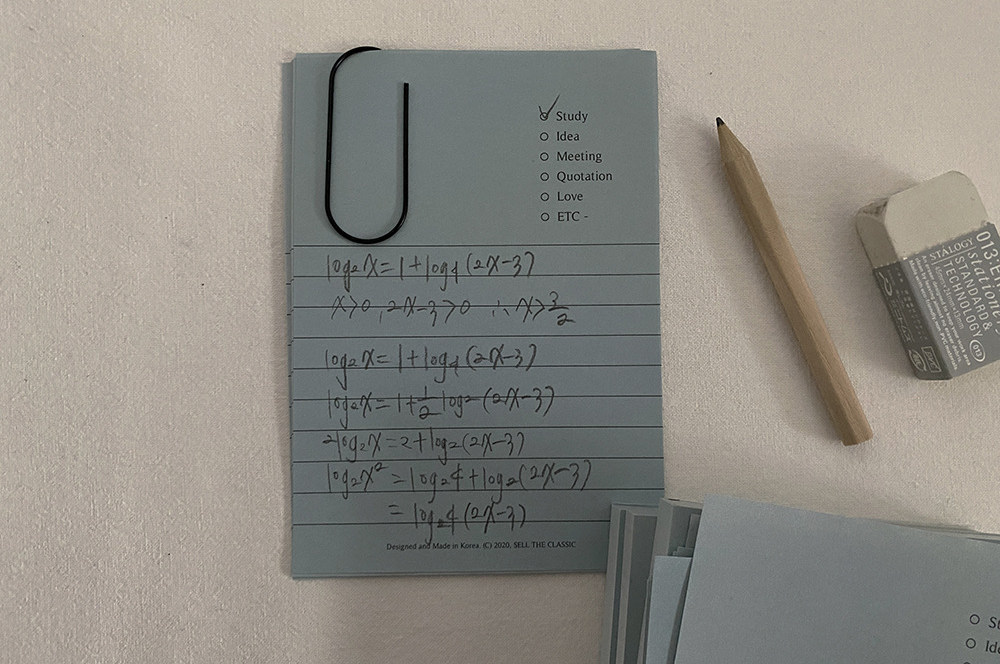 Study
Idea
Meeting
Quotation
Love
ETC -
log₂x=1+log₄(2x-3)
x>0, 2x-3>0 ∴ x>3/2
log₂x=1+log₄(2x-3)
log₂x=1+1/2 log₂(2x-3)
2log₂x=2+log₂(2x-3)
log₂x²=log₂4+log₂(2x-3)
=log₂4(2x-3)
Designed and Made in Korea. (C) 2020, SELL THE CLASSIC
013-
STALOGY
STANDARD &
TECHNOLOGY
013
St
Ide